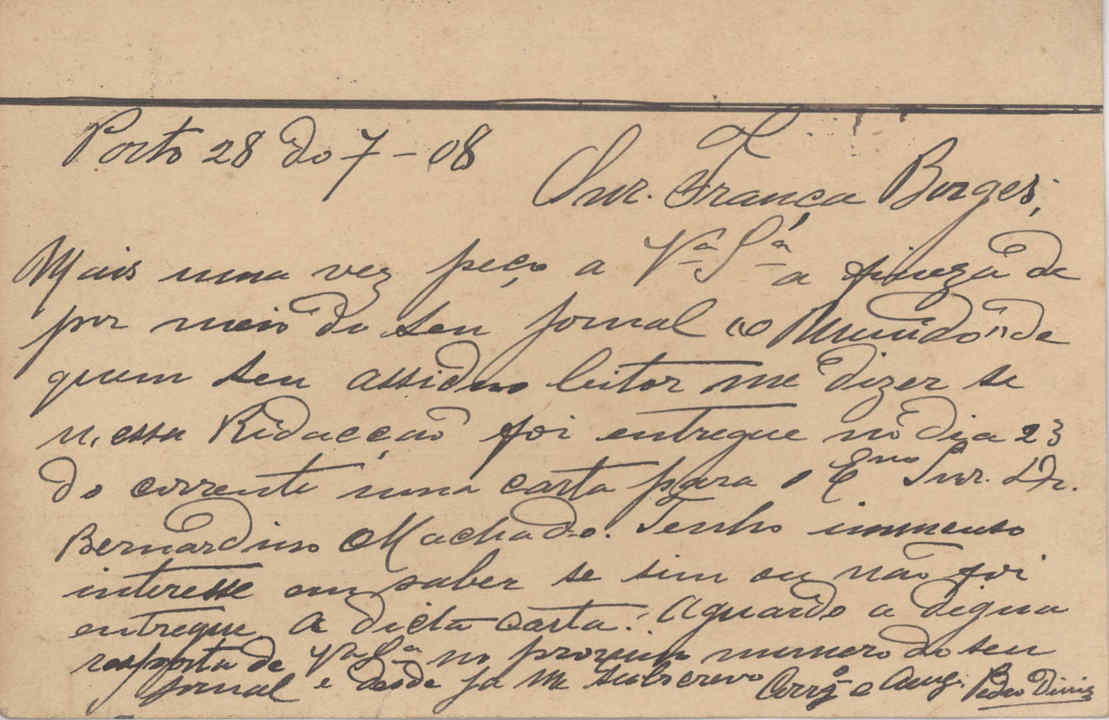 Porto 28 do 7-08
Snr. França Borges;
Mais uma vez peço a Vª Sª a fineza de
por meio do seu jornal "O Mundo" de
quem seu assiduo leitor me dizer se
n'essa Ridacção foi entregue no dia 23
do corrente uma carta para o Eᵐᵒ Snr. Dr.
Bernardino Machado. Tenho immenso
interesse em saber se sim ou não foi
entregue a dicta carta. Aguardo a digna
resposta de Vª Sª no proximo numero do seu
jornal e desde ja me subscrevo Corrº e Amg. Pedro Diniz